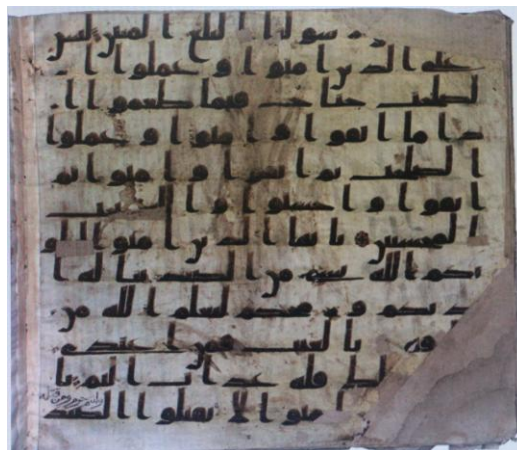 رسولنا البلغ المبين ليس
على الذين امنوا وعملوا ا
لصلحت جناح فيما طعموا ا
ذا ما اتقوا وامنوا وعملوا
الصلحت ثم اتقوا وامنوا ثم
اتقوا واحسنوا والله يحب
المحسنين يايها الذين امنوا ليبلو
نكم الله بشي من الصيد تناله ا
يديكم ورمحكم ليعلم الله من
بالغيب فمن اعتدى
فله عذاب اليم يا
امنوا لا تقتلوا الصيد